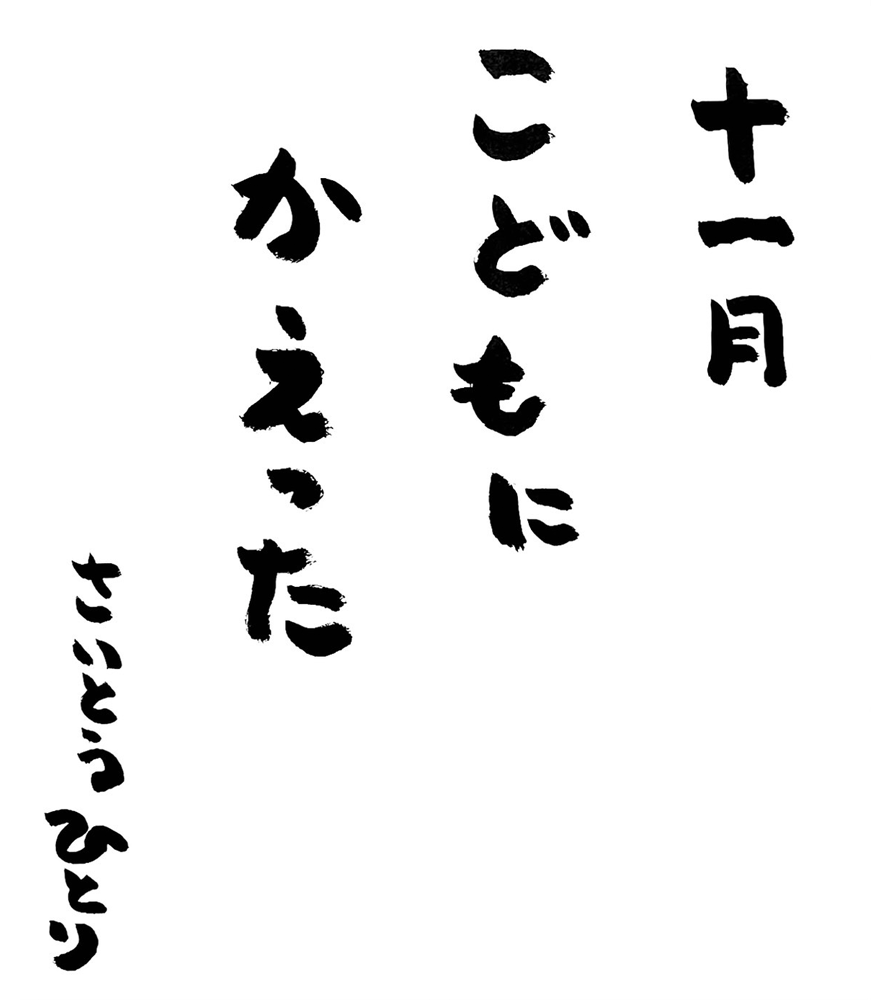 十一月
こどもに
かえった
さいとうひとり